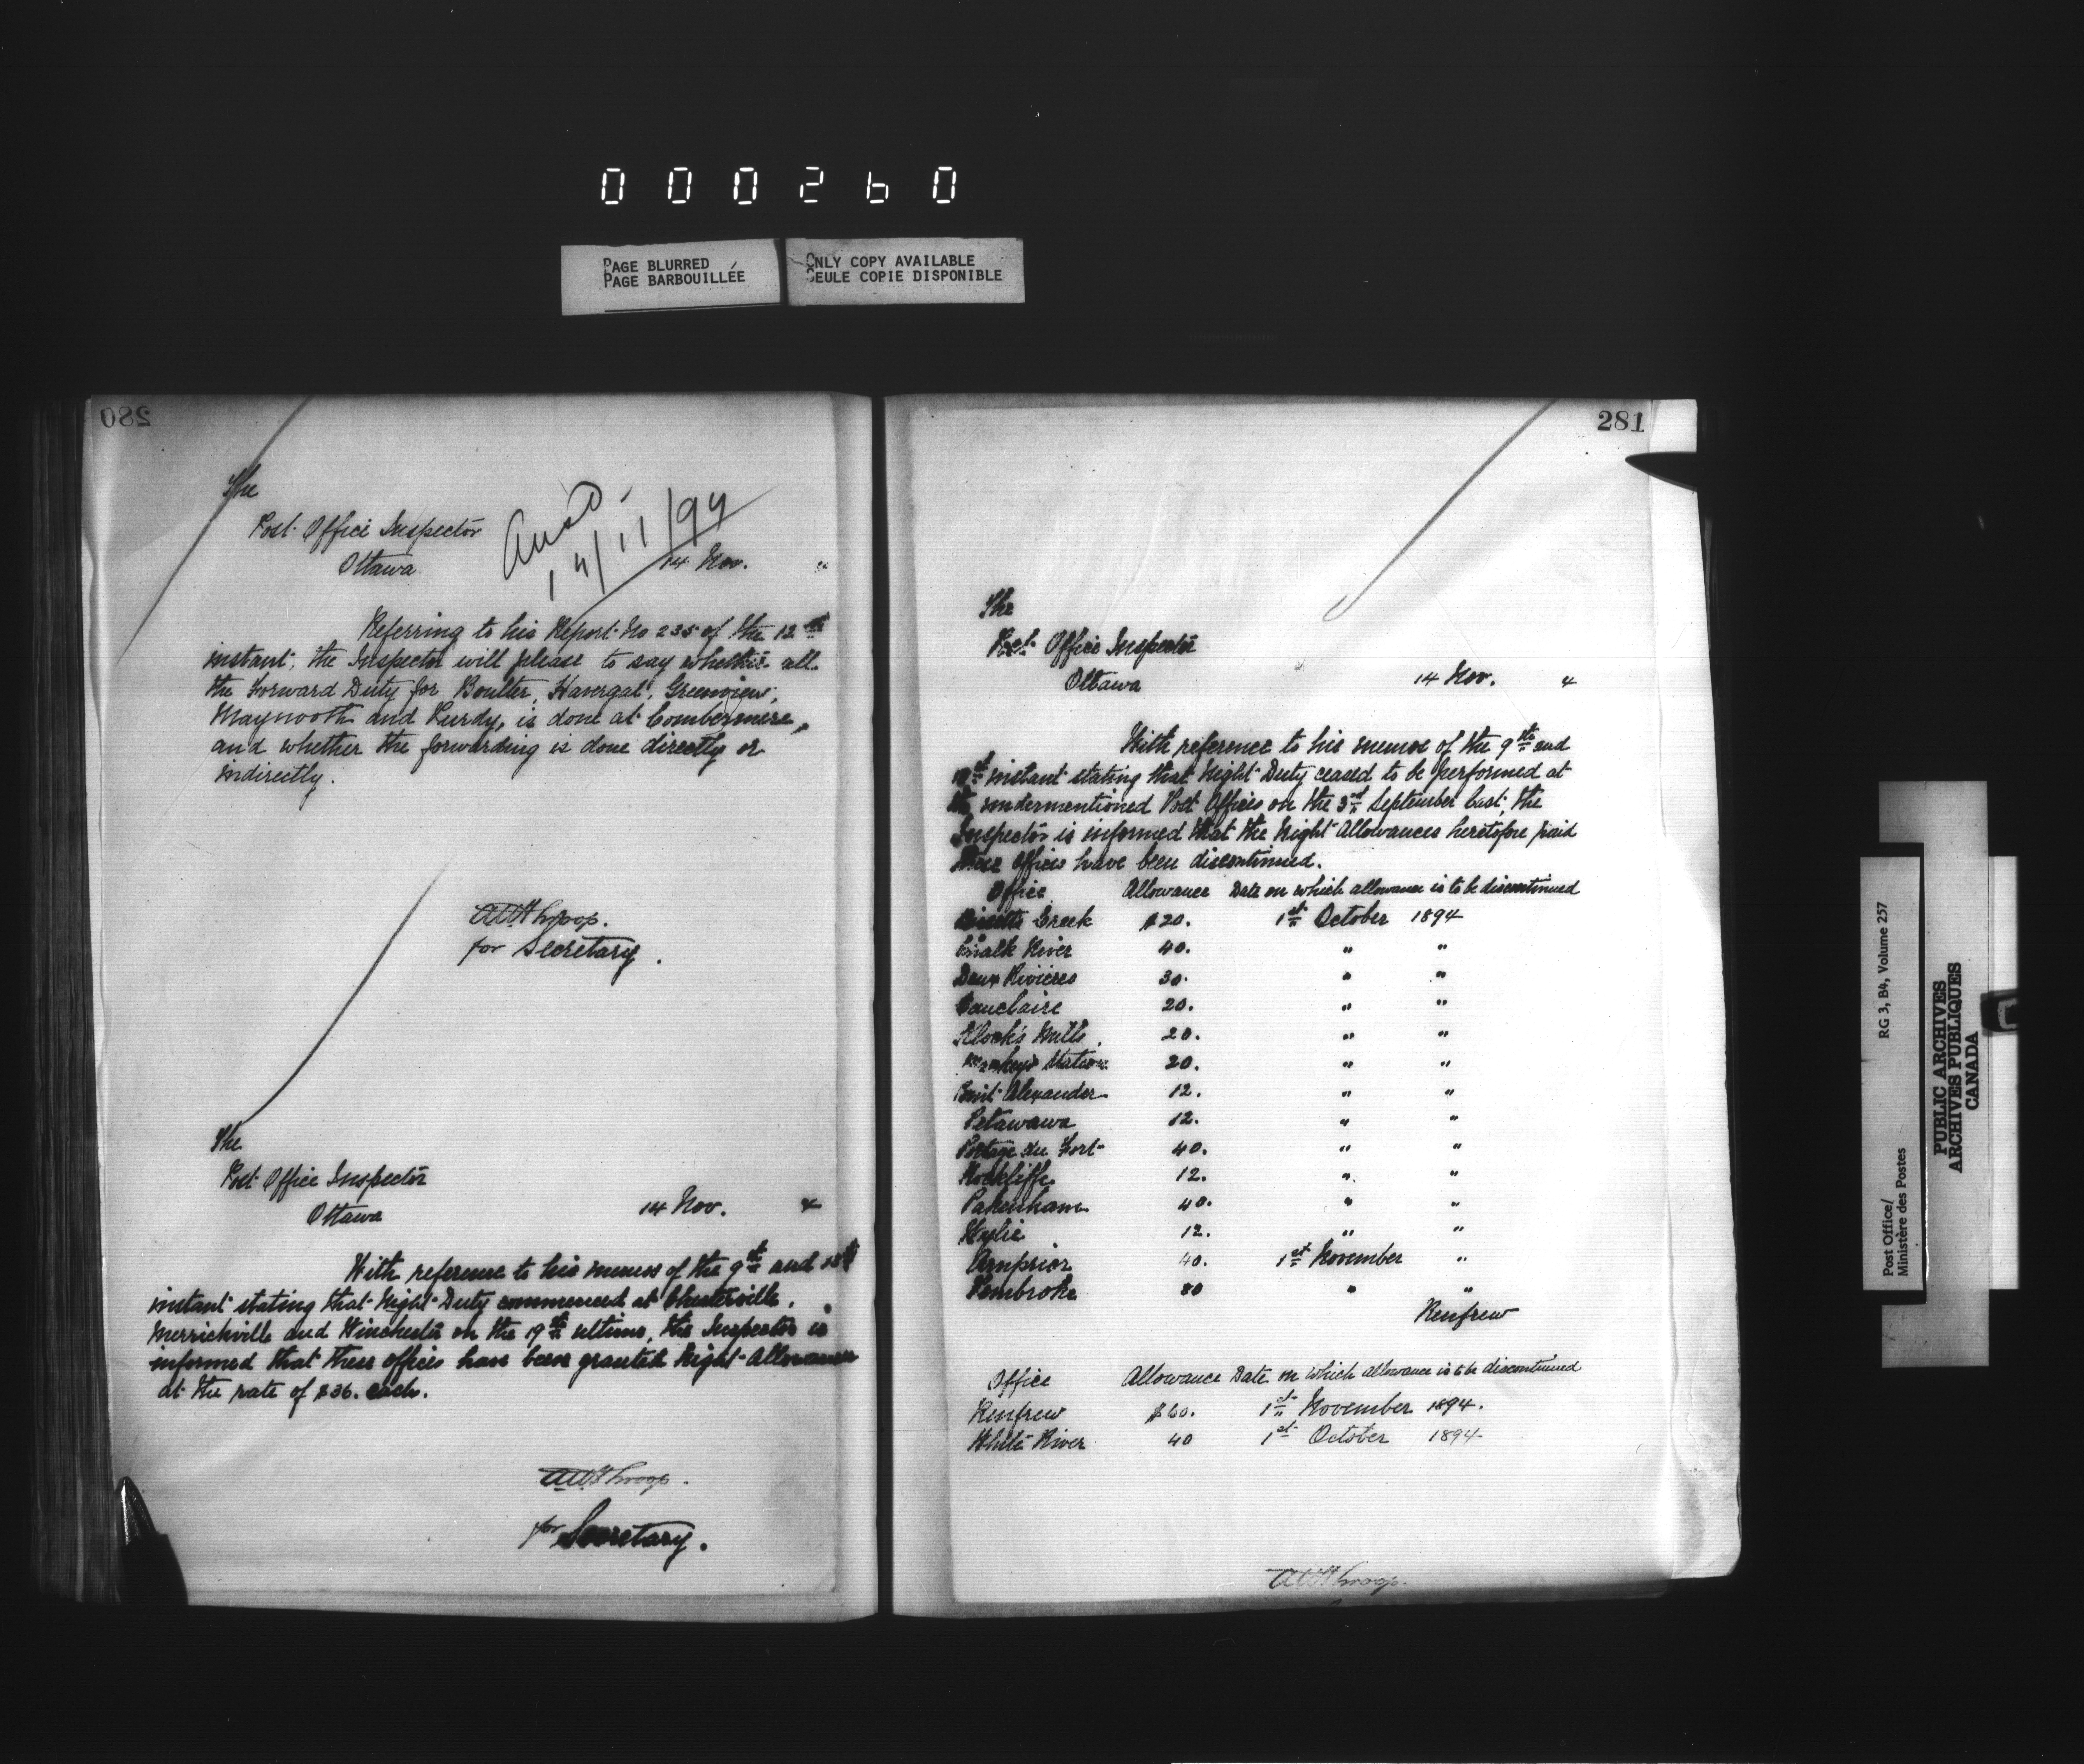 000260
PAGE BLURRED
PAGE BARBOUILLÉE
ONLY COPY AVAILABLE
SEULE COPIE DISPONIBLE
280
The
Post Office Inspector
Ottawa
14/11/94
14 Nov. 4
Referring to his Report No 235 of the 12th
instant, the Inspector will please to say whether all
the Forward Duty for Boulter, Havergal, Greenview,
Maynooth and Purdy, is done at Combermere,
and whether the forwarding is done directly or
indirectly.
AWThroop.
for Secretary.
The
Post Office Inspector
Ottawa
14 Nov. 4
With reference to his memos of the 9th and
instant stating that Night Duty commenced at Chesterville,
Merrickville and Winchester on the 19th ultimo, the Inspector is
informed that these offices have been granted Night Allowances
at the rate of $36. each.
AWThroop.
for Secretary.
281
The
Post Office Inspector
Ottawa
14 Nov. 4
With reference to his memos of the 9th and
instant stating that Night Duty ceased to be performed at
the undermentioned Post Offices on the 3rd September last, the
Inspector is informed that the Night Allowances heretofore paid
these offices have been discontinued.
Office Allowance Date on which allowance is to be discontinued
Creek $20. 1st October 1894
Chalk River 40. " "
Deux Rivières 30. " "
Eauclaire 20. " "
Klock's Mills 20. " "
Mackey's Station 20. " "
Point Alexander 12. " "
Petawawa 12. " "
Portage du Fort 40. " "
Rockliffe 12. " "
Pakenham 40. " "
Wylie 12. " "
Arnprior 40. 1st November "
Pembroke 80 " "
Renfrew
Office Allowance Date on which allowance is to be discontinued
Renfrew $60. 1st November 1894.
White River 40 1st October 1894
AWThroop.
Post Office/
Ministère des Postes
RG 3, B4, Volume 257
PUBLIC ARCHIVES
ARCHIVES PUBLIQUES
CANADA